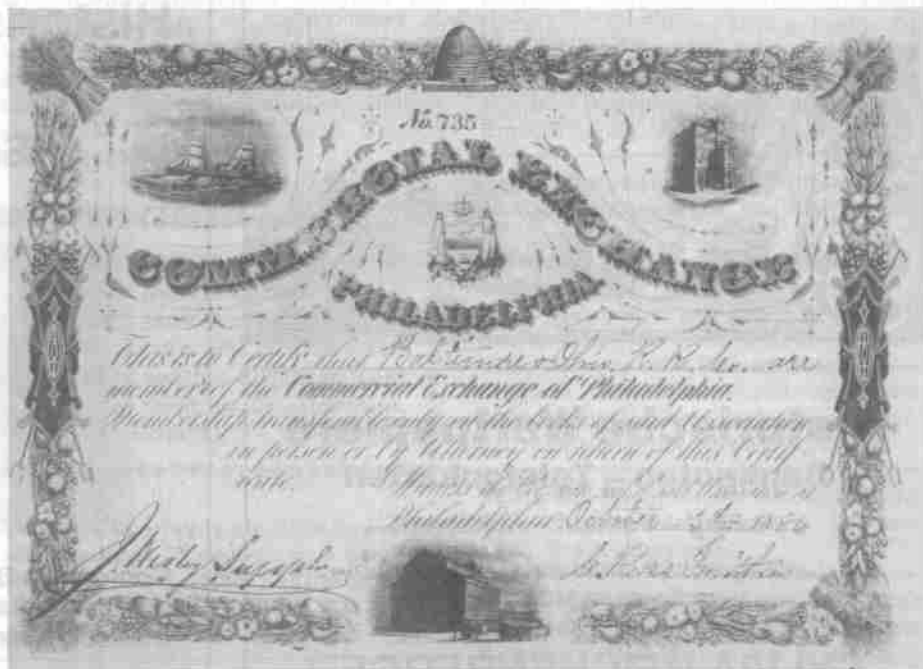 No. 735
COMMERCIAL EXCHANGE
PHILADELPHIA
This is to Certify that Baltimore & Ohio R. R. Co. are
members of the Commercial Exchange of Philadelphia.
Membership transferable only on the books of said Association
in person or by Attorney on return of this Certif-
icate. Witness the
Philadelphia October
J Wesley Supplee